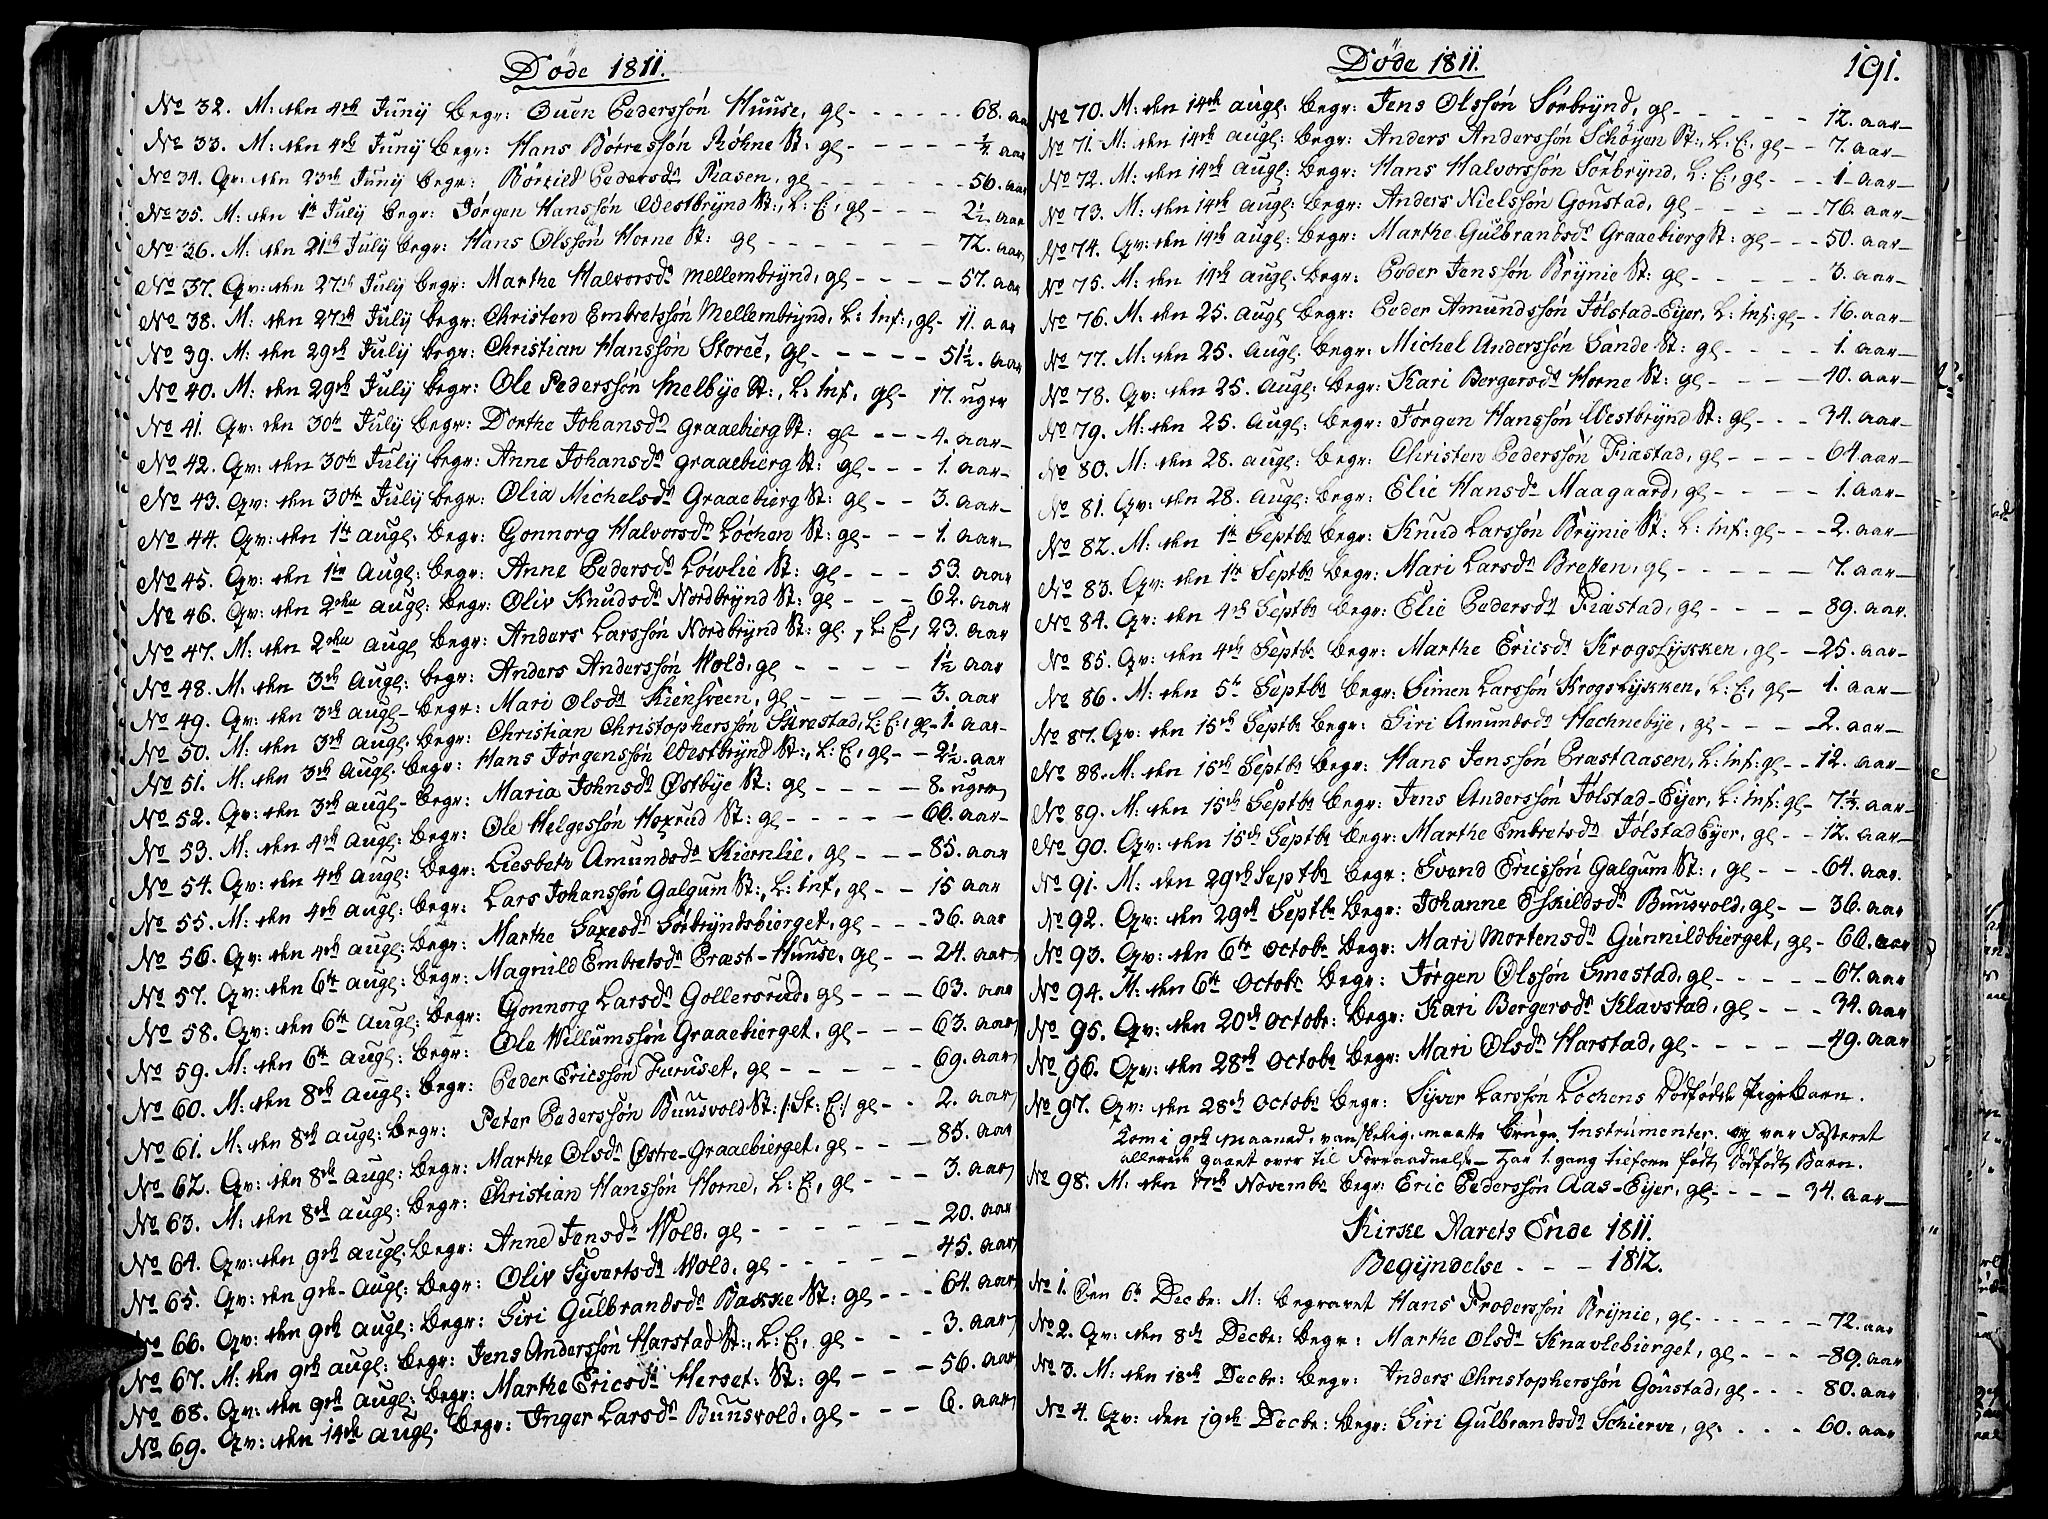 Döde 1811.
No 32. M: den 4de Junij Begr: Ouen Pederssön Huuse, gl - - - - - 68. aar
No 33. M: den 4de Junij Begr: Hans Börressön Röhne St: gl - - - - - aar
No 34. Qv: den 23de Junij Begr: Börtild Pedersdr Aasen, gl - - - - - 56. aar
No 35. M: den 1te July Begr: Jörgen Hanssön Westbrÿnd St:, L: E:, gl - - - 2½. aar
No 36. M: den 21de July Begr: Hans Olssön Horne St: gl - - - - - 72. aar
No 37. Qv: den 27de July Begr: Marthe Halvorsdr Mellembrÿnd, gl - - - - 57. aar
No 38. M: den 27de July Begr: Christen Embretssön Mellembrÿnd, L: Inf:, gl - 11. aar
No 39. M: den 29de July Begr: Christian Hanssön Storeë, gl - - - - - 51½. aar
No 40. M: den 29de July Begr: Ole Pederssön Melbÿe St:, L: Inf, gl - 17. uger
No 41. Qv: den 30te July Begr: Dorthe Johansdr Graaebierg St: gl - - - 4. aar
No 42. Qv: den 30te July Begr: Anne Johansdr Graaebierg St: gl - - - 1. aar
No 43. Qv: den 30te July Begr: Olia Michelsdr Graaebierg St: gl - - 3. aar
No 44. Qv: den 1te Augl: Begr: Gonnorg Halvorsdr Löchen St: gl - - - 1. aar
No 45. Qv: den 1te Augl: Begr: Anne Pedersdr Löwlie St: gl - - - 53. aar
No 46. Qv: den 2den Augl: Begr: Oliv Knudsdr Nordbrÿnd St: gl - - - 62. aar
No 47. M: den 2den Augl Begr: Anders Larssön Nordbrÿnd St: gl., L: E:, 23. aar
No 48. M: den 3de Augl: Begr: Anders Anderssön Wold, gl - - - - 1½ aar
No 49. Qv: den 3de Augl - Begr: Mari Olsdr Kiensveen, gl - - - - 3. aar
No 50. M: den 3de Augl: Begr: Christian Christopherssön Sirestad, L: E:, gl - 1. aar
No 51. M: den 3de Augl: Begr: Hans Jörgenssön Westbrÿnd St:, L: E, gl - - 2½. aar
No 52. Qv: den 3de Augl - Begr: Maria Johnsdr Östbÿe St: gl - - - - 8. uger
No 53. M: den 4de Augl: Begr: Ole Helgessön Hoxrud St: gl - - - - - 60. aar
No 54. Qv: den 4de Augl: Begr: Liesbeth Amundsdr Kiernlie, gl - - - 85. aar
No 55. M: den 4de Augl: Begr: Lars Johanssön Galgum St:, L: Inf, gl - - 15 aar
No 56. Qv: den 4de Augl: Begr: Marthe Saxesdr Sörbrÿndsbierget, gl - - - 36. aar
No 57. Qv: den 6te Augl: Begr: Magnild Embretsdr Præst-Huuse, gl - - 24. aar
No 58. Qv: den 6te Augl: Begr: Gonnorg Larsdr Gollersrud, gl - - - 63. aar
No 59. M: den 6te Augl: Begr: Ole Willumssön Graaebierget, gl - - - 63. aar
No 60. M: den 8de Augl: Begr: Peder Ericssön Furuset, gl - - - - - 69. aar
No 61. M: den 8de Augl: Begr: Peter Pederssön Buusvold St: /: St: E:/ gl - - 2. aar
No 62. Qv: den 8de Augl: Begr: Marthe Olsdr Östre-Graaebierget, gl - - - 85. aar
No 63. M: den 8de Augl: Begr: Christian Hanssön Horne, L: E, gl - - - 3. aar
No 64. Qv: den 9de Augl: Begr: Anne Jensdr Wold, gl - - - - - - 20. aar
No 65. Qv: den 9de - Augl: Begr: Oliv Sÿvertsdr Wold, gl - - - - - 45. aar
No 66. Qv: den 9de Augl: Begr: Siri Gulbrandsdr Bakke St: gl - - - 64. aar
No 67. M: den 9de Augl: Begr: Jens Anderssön Harstad St:, L: E, gl - - - 3. aar
No 68. Qv: den 9de Augl: Begr: Marthe Ericsdr Herset: St: gl - - - 56. aar
No 69. Qv: den 14de Augl. Begr: Inger Larsdr Buusvold, gl - - - 6. aar
Döde 1811. 191.
No 70. M: den 14de Augl: Begr: Jens Olssön Sörbrÿnd, gl - - - - - 12. aar
No 71. M: den 14de Augl: Begr: Anders Anderssön Schöÿen St:, L: E:, gl - - 7. aar
No 72. M: den 14de Augl: Begr: Hans Halvorssön Sörbrÿnd, L: E:, gl - - - 1 - aar
No 73. M: den 14de Augl: Begr: Anders Nielssön Gonstad, gl - - - - - 76. aar
No 74. Qv: den 14de Augl: Begr: Marthe Gulbrandsdr Graaebierg St: gl - - - 50. aar
No 75. M: den 14de Augl: Begr: Peder Jenssön Brÿnie St: gl - - - - 3. aar
No 76. M: den 25. Augl Begr: Peder Amundssön Jölstad-Eÿer, L: Inf: gl - - 16. aar
No 77. M: den 25. Augl: Begr: Michel Anderssön Sande St: gl - - - - 1. aar
No 78. Qv: den 25. Augl: Begr: Kari Bergersdr Horne St: gl - - - - 40. aar
No 79. M: den 25. Augl: Begr: Jörgen Hanssön Westbrÿnd St: gl - - - 34. aar
No 80. M: den 28. Augl: Begr: Christen Pederssön Fiæstad, gl - - - - 64 aar
No 81. Qv: den 28. Augl: Begr: Elie Hansdr Maagaard, gl - - - - 1. aar
No 82. M: den 1te Septbr Begr: Knud Larssön Brÿnie St: L: Inf: gl - - - 2. aar
No 83. Qv: den 1te Septbr Begr: Mari Larsdr Bretten, gl - - - - - 7. aar
No 84. Qv: den 4de Septbr Begr: Elie Pedersdr Fiæstad, gl - - - - 89. aar.
No 85. Qv: den 4de Septbr Begr: Marthe Ericsdr Krogslÿkken, gl - - 25. aar
No 86. M: den 5te Septbr Begr: Simen Larssön Krogslÿkken, L: E:, gl - 1. aar
No 87. Qv: den 15de Septbr Begr: Siri Amundsdr Hechnebÿe, gl - - - - 2. aar
No 88. M: den 15de Septbr Begr: Hans Jenssön Præstaasen, L: Inf: gl - - 12. aar
No 89. M: den 15de Septbr Begr: Jens Anderssön Jölstad-Eÿer, L: Inf: gl - 7½. aar
No 90. Qv: den 15de Septbr Begr: Marthe Embretsdr Jölstad Eÿer, gl - - 12. aar
No 91. M: den 29de Septbr Begr: Svend Ericssön Galgum St:, gl - - - 64. aar.
No 92. Qv: den 29de Septbr Begr: Johanne Eskildsdr Buusvold, gl - - 36. aar
No 93. Qv: den 6te Octobr Begr: Mari Mortensdr Gunnildbierget, gl - 66. aar
No 94. M: den 6te Octobr Begr: Jörgen Olssön Smestad, gl - - - - - 67. aar
No 95. Qv: den 20de Octobr: Begr: Kari Bergersdr Klavstad, gl - - - 34. aar
No 96. Qv: den 28de Octobr Begr: Mari Olsdr Harstad, gl - - - - - - 49. aar
No 97. Qv: den 28de Octobr Begr: Sÿver Larssön Löchens Dödfödde Pige Barn.
Kom i 9de maaned, vanskelig, maatte bruge Instrumenter. var Fosteret
allerede gaaet over til Forraadnelse - har 1. gang tilforn födt Dödfödt Barn.
No 98. M: den Novembr Begr: Eric Pederssön Aas-Eÿer, gl - - - - 34. aar
Kirke Aarets Ende 1811.
Begÿndelse - - - 1812.
No 1. Den 6te Decbr: M: Begravet Hans Froderssön Brÿnie, gl - - - - - - 72. aar
No 2. Qv: den 8de Decbr: Begr: Marthe Olsdr Knavlebierget, gl - - - - 89. aar
No 3. M: den 18de Decbr: Begr: Anders Christopherssön Gonstad, gl - - - 80. aar
No 4. Qv: den 19de Decbr: Begr: Siri Gulbrandsdr Schierve, gl. - - - 60. aar